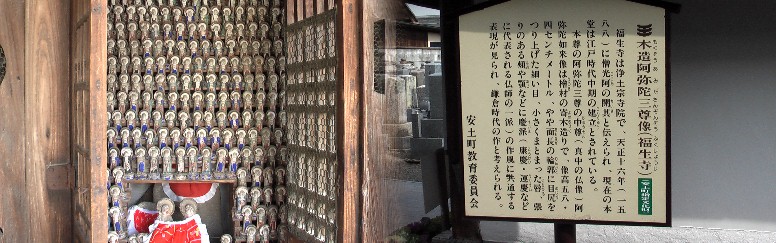 木造阿弥陀三尊像(福生寺)
福生寺は浄土宗寺院で、天正十六年(一五
八八)に僧光阿の開基と伝えられ、現在の本
堂は江戸時代中期の建立とされている。
本尊の阿弥陀三尊の中尊(真中の仏像)阿
弥陀如来像は檜材の寄木造りで、像高五八・
四センチメートル、やや面長の輪郭に目尻を
つり上げた細い目、小さくまとまった唇、張
りのある頬や顎などに慶派(康慶・運慶など
に代表される仏師の一派)の作風に共通する
表現が見られ、鎌倉時代の作と考えられる。
安土町教育委員会